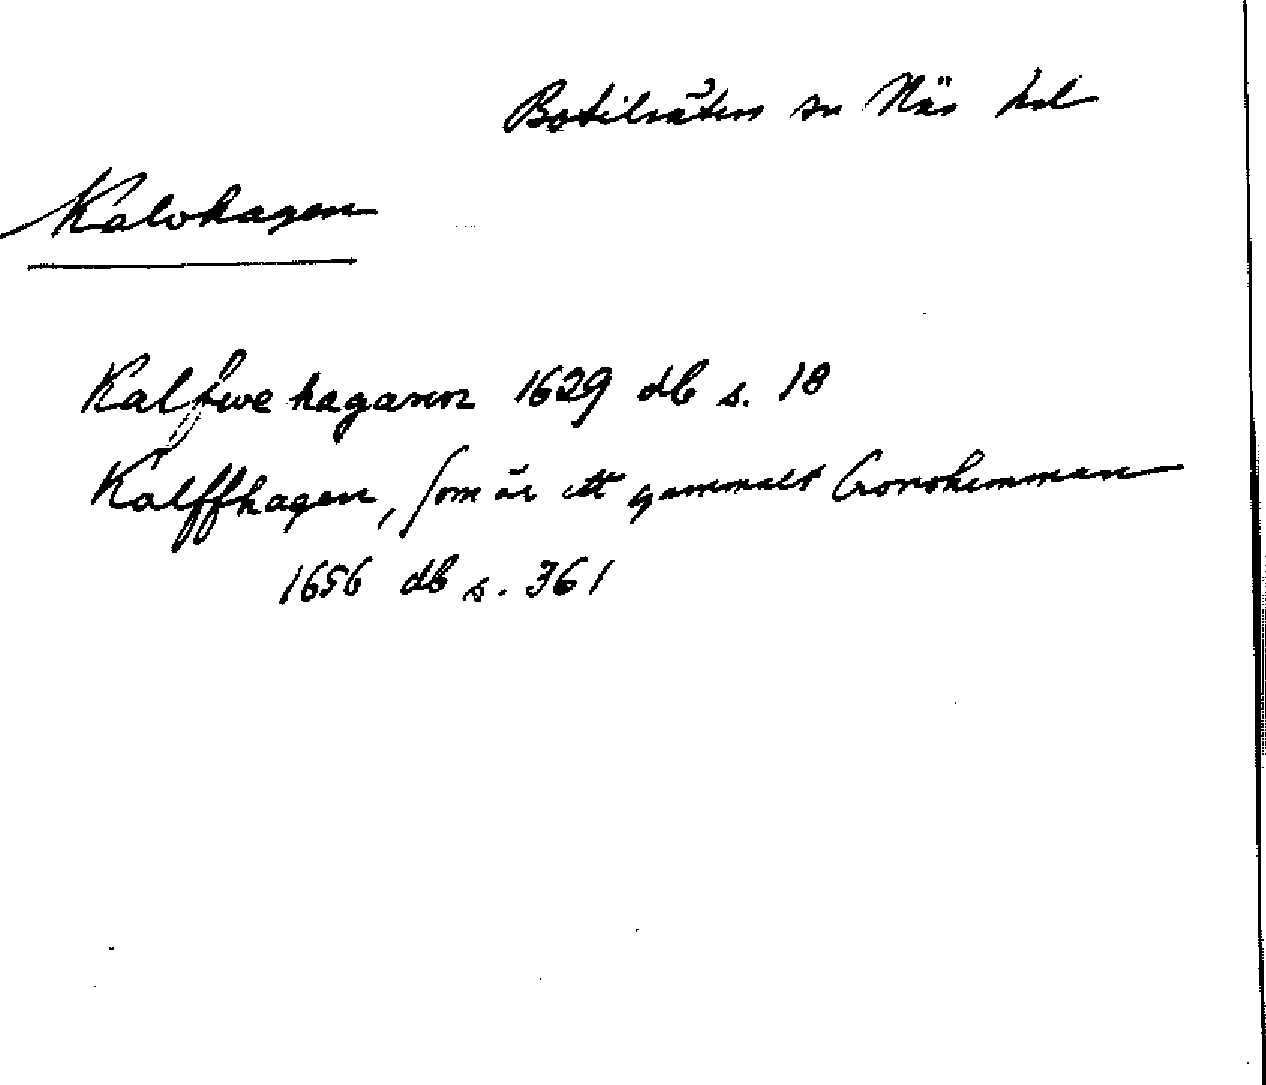 Botilsäters sn Näs hd
Kalvhagen
Kalfwe hagaren 1629 db s. 18
Kalffhagen, som är ett gammalt Cronohemman
1656 db s. 361